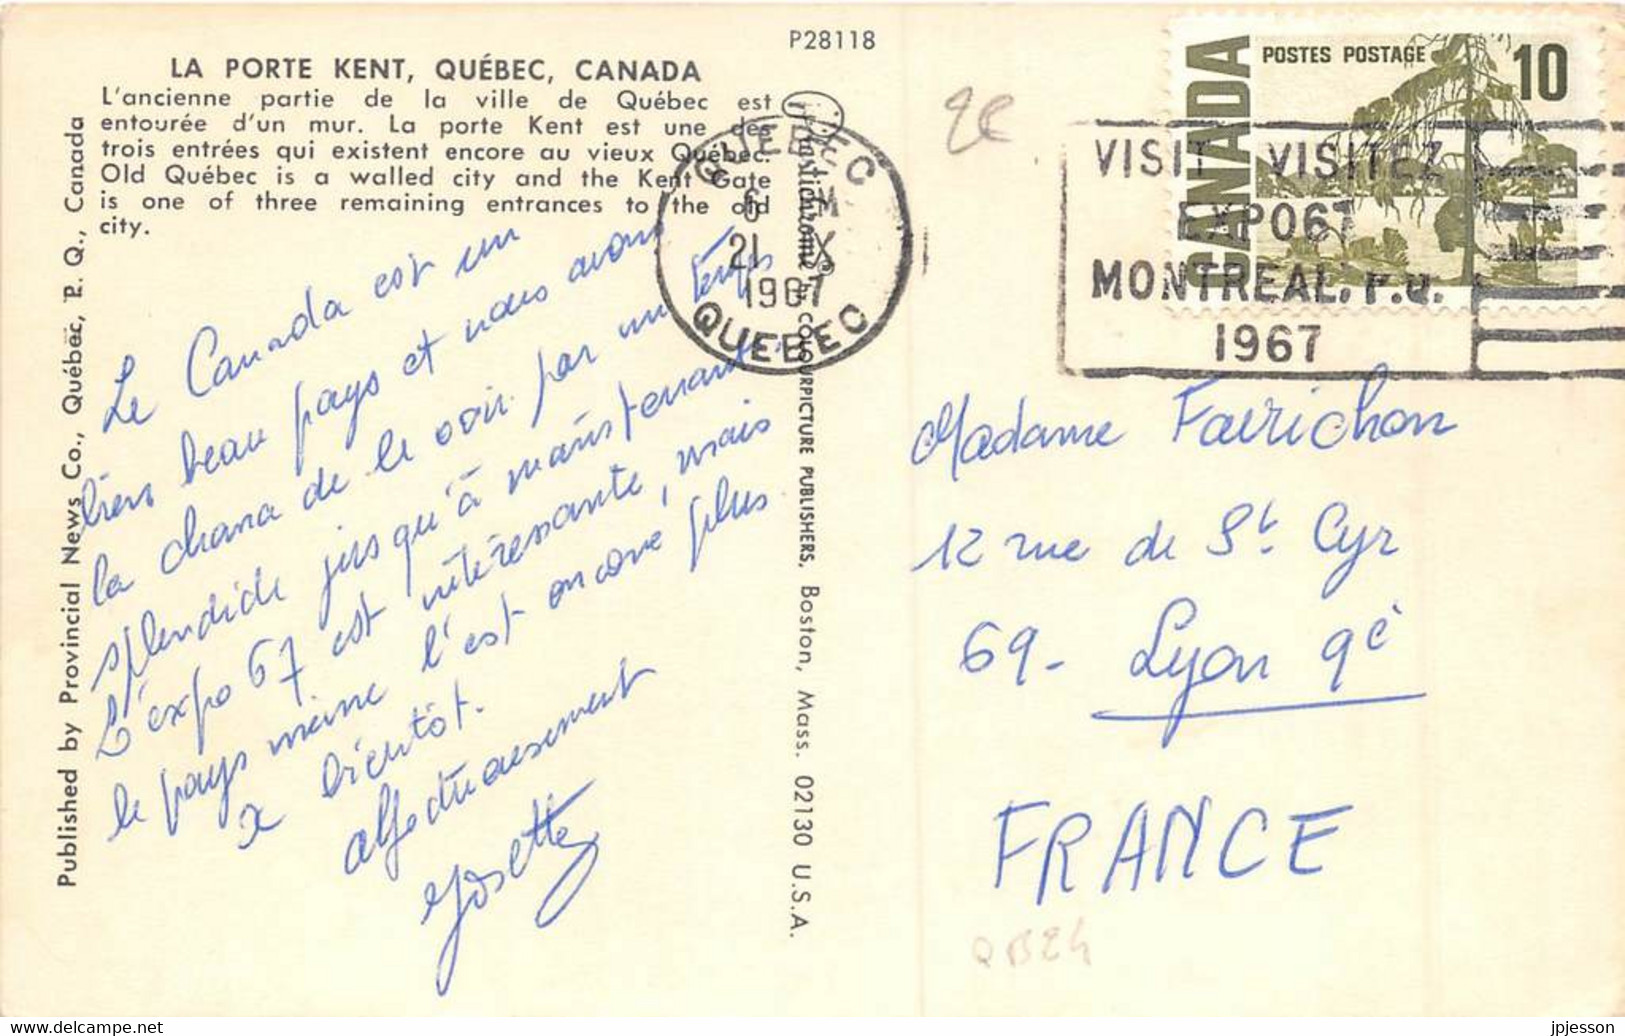 P28118
LA PORTE KENT, QUÉBEC, CANADA
L'ancienne partie de la ville de Québec est
entourée d'un mur. La porte Kent est une des
trois entrées qui existent encore au vieux Québec.
Old Québec is a walled city and the Kent Gate
is one of three remaining entrances to the old
city.
Published by Provincial News Co., Québec, P. Q., Canada
Le Canada est un
bien beau pays et nous avons
la chance de le voir par un temps
splendide jusqu'à maintenant.
L'expo 67 est intéressante, mais
le pays même l'est encore plus
à bientôt.
affectueusement
Josette
COLOURPICTURE PUBLISHERS, Boston, Mass. 02130 U.S.A.
QUEBEC
6 PM
21 X
1967
QUEBEC
CANADA
POSTES POSTAGE
10
VISIT VISITEZ
EXPO67
MONTREAL, P.Q.
1967
2€
Madame Favrichon
12 rue de St Cyr
69 - Lyon 9è
FRANCE
QB24
www.delcampe.net
jpjesson